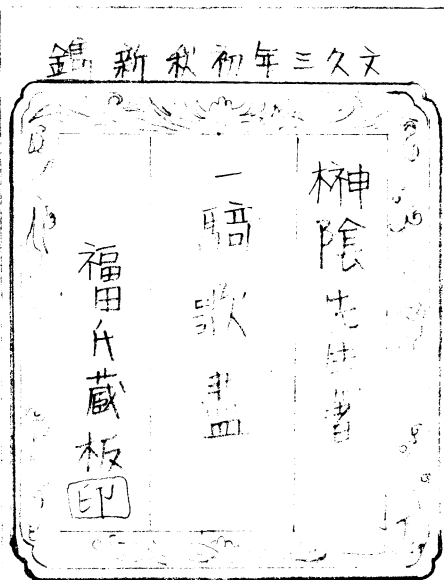 文久三年初秋新鐫
榊陰先生著
一騎歌盡
福田氏蔵板
印